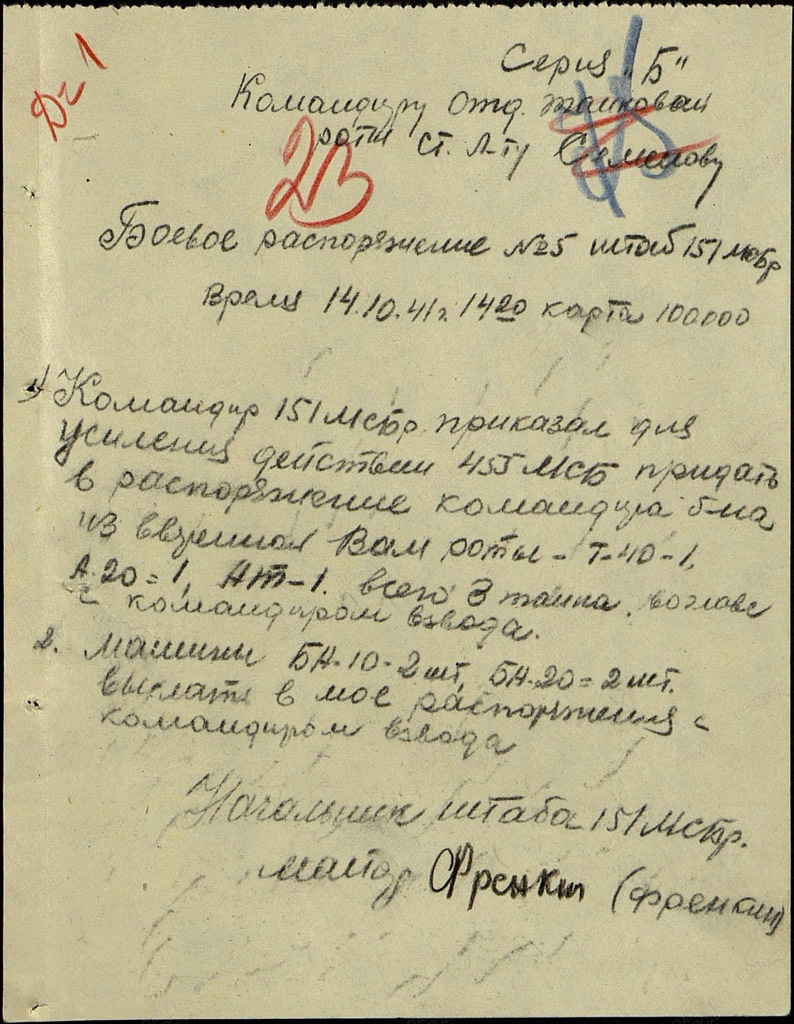 Д-1
Серия "Б"
Командиру отд. танковой
роты ст. л-ту Семенову
23
Боевое распоряжение №5 штаб 151 мсбр
Время 14.10.41г. 1420 карта 100000
1) Командир 151 Мсбр приказал для
усиления действии 455 МСБ придать
в распоряжение командира б-на
из вверенной Вам роты - Т-40-1,
А-20=1, НТ-1. всего 3 танка, во главе
с командиром взвода.
2. Машины БА-10-2 шт, БА-20=2 шт.
выслать в мое распоряжения с
командиром взвода
Начальник штаба 151 Мсбр.
майор Френкин (Френкин)